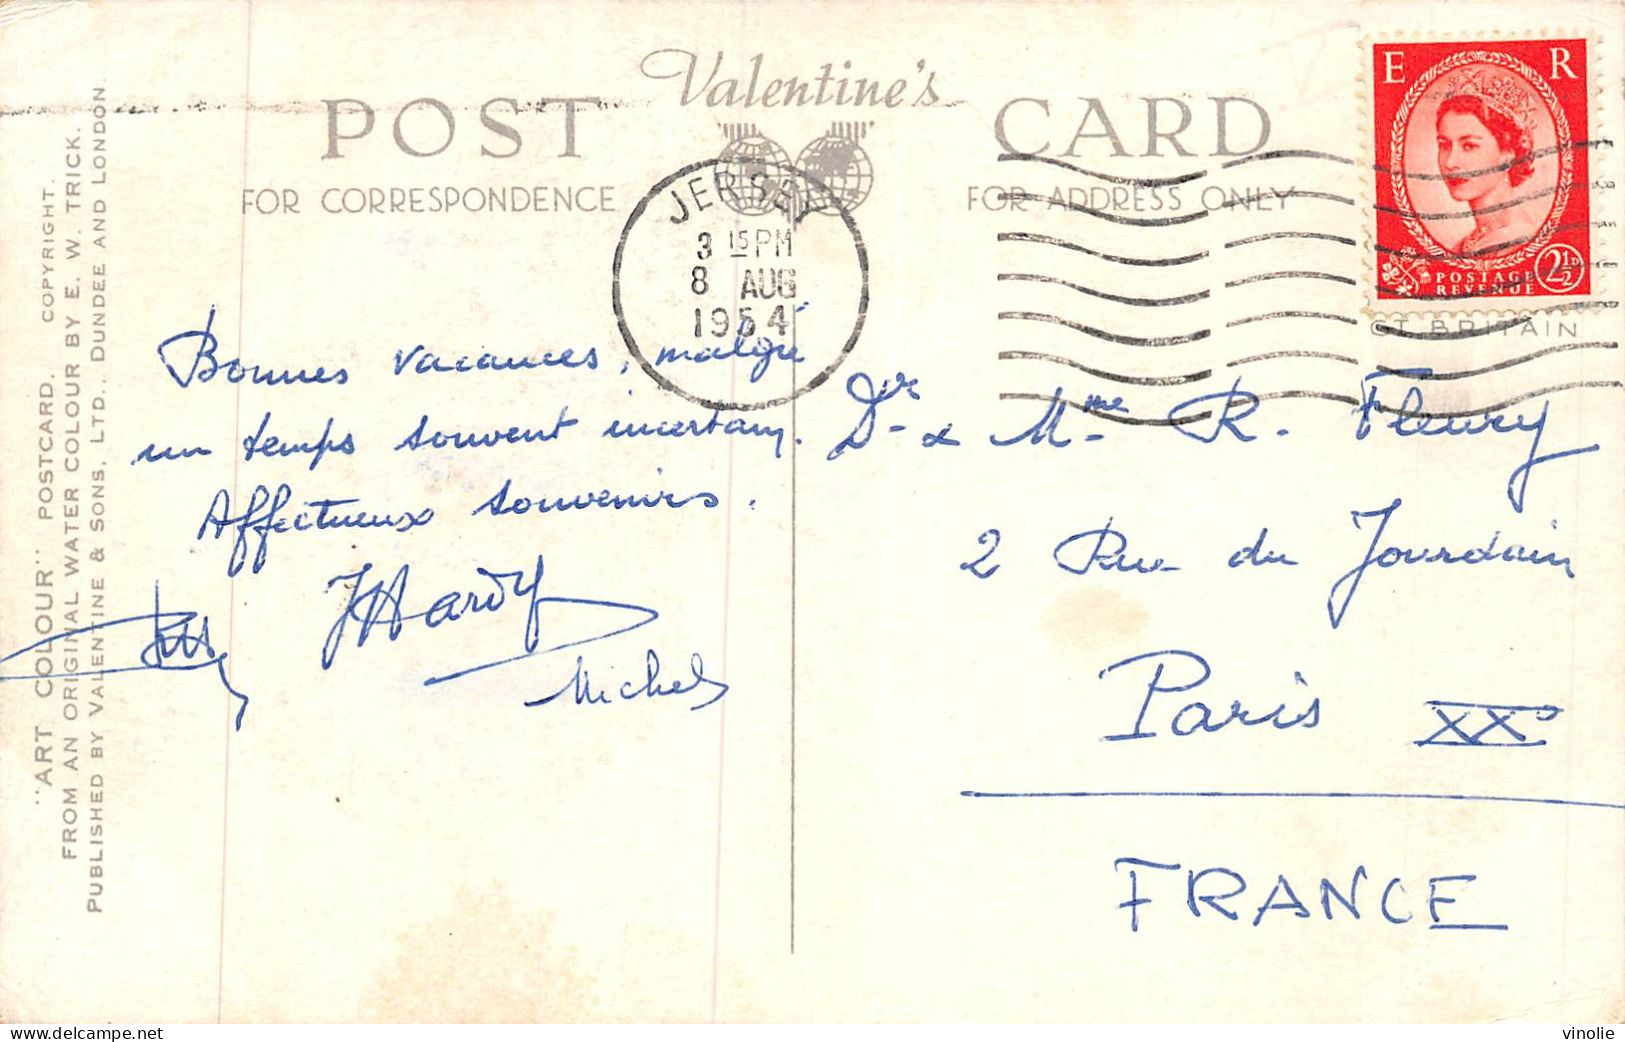 Valentine's
POST CARD
FOR CORRESPONDENCE
FOR ADDRESS ONLY
"ART COLOUR" POSTCARD. COPYRIGHT.
FROM AN ORIGINAL WATER COLOUR BY E. W. TRICK.
PUBLISHED BY VALENTINE & SONS, LTD., DUNDEE AND LONDON.
JERSEY
3 15 PM
8 AUG
1954
E R
POSTAGE
REVENUE
2½D
GT. BRITAIN
Bonnes vacances, malgré
un temps souvent incertain.
Affectueux souvenirs.
JHardy
Michel
Dr & Mme R. Fleury
2 Rue du Jourdain
Paris XXe
FRANCE
delcampe.net
vinolie